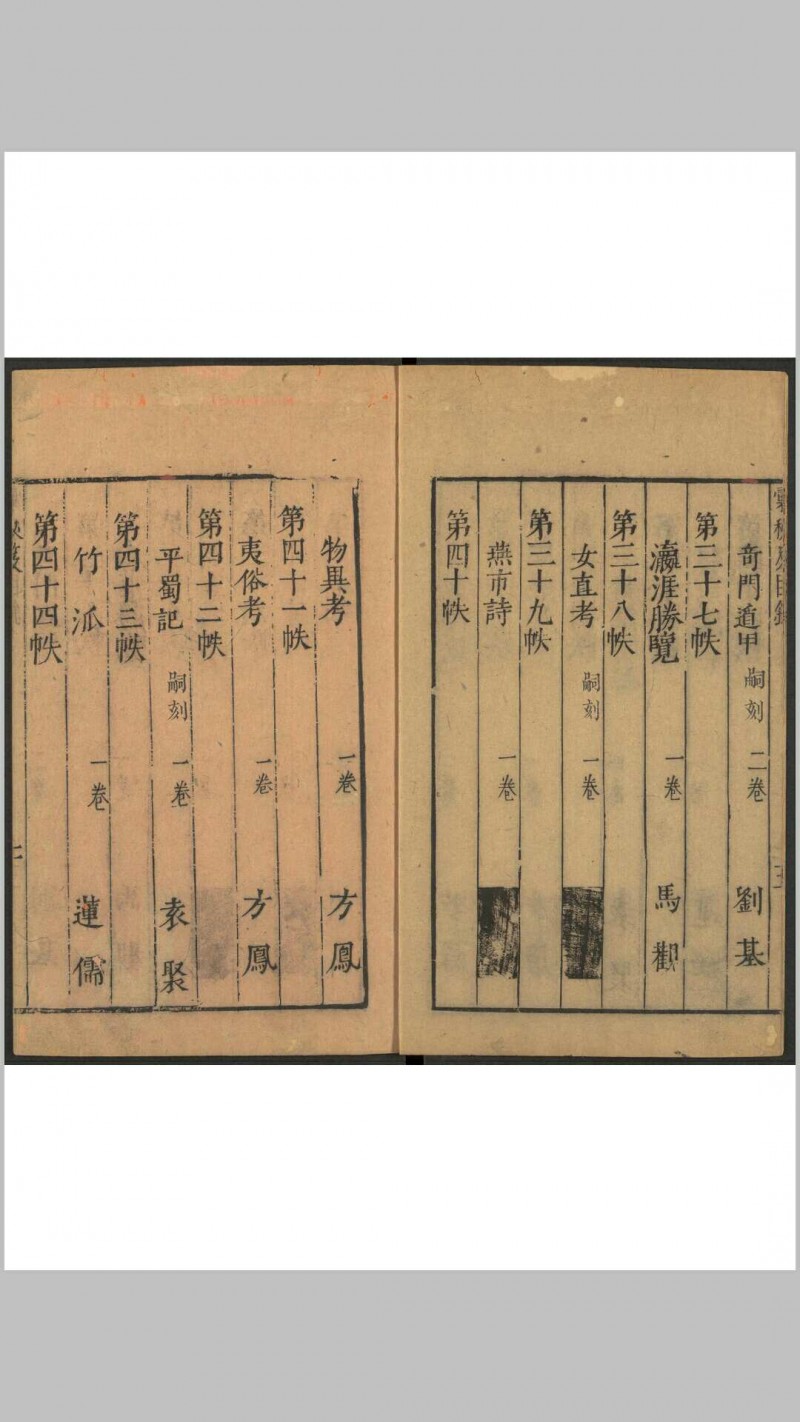 奇門遁甲 嗣刻 二卷 劉基
第三十七帙
瀛涯勝覽 一卷 馬觀
第三十八帙
女直考 嗣刻 一卷
第三十九帙
燕市詩 一卷
第四十帙
物異考 一卷 方鳳
第四十一帙
夷俗考 一卷 方鳳
第四十二帙
平蜀記 嗣刻 一卷 袁聚
第四十三帙
竹派 一卷 蓮儒
第四十四帙